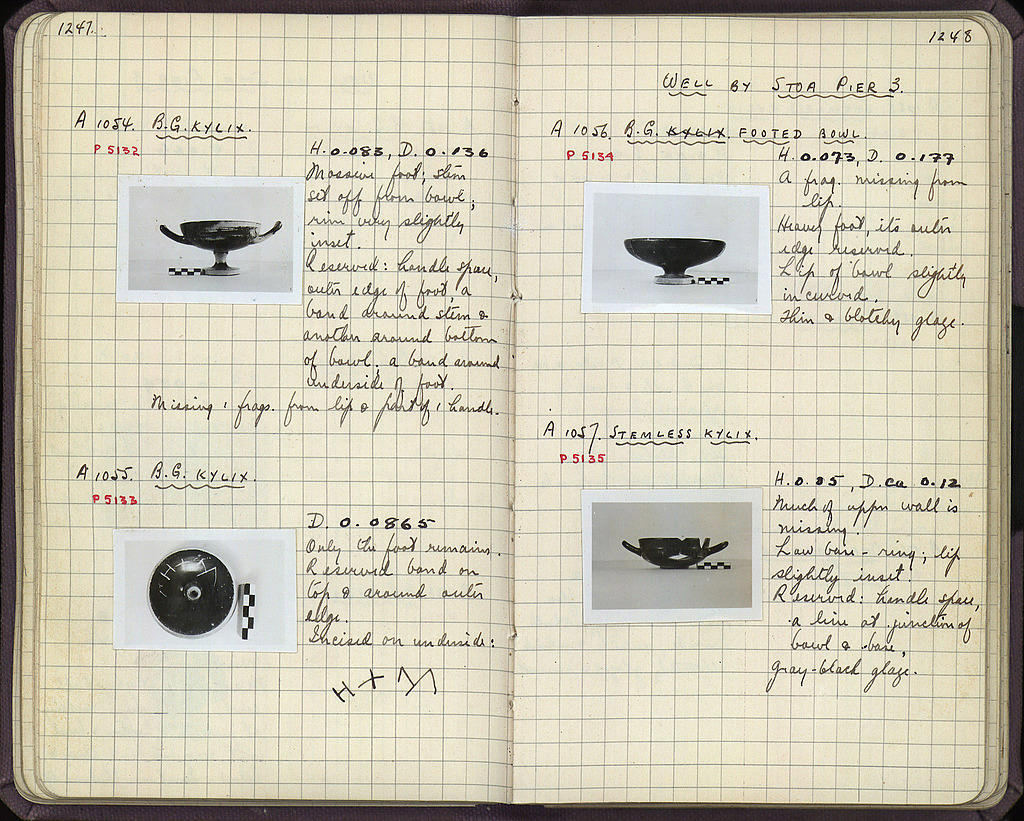 1247.
A 1054. B.G. KYLIX.
P 5132
H. 0.083, D. 0.136
Massive foot; stem
set off from bowl;
rim very slightly
inset.
Reserved: handle space,
outer edge of foot, a
band around stem &
another around bottom
of bowl; a band around
underside of foot.
Missing: frags. from lip & part of 1 handle.
A 1055. B.G. KYLIX.
P 5133
D. 0.0865
Only the foot remains.
Reserved band on
top & around outer
edge.
Incised on underside:
H X
1248
WELL BY STOA PIER 3.
A 1056. B.G. KYLIX FOOTED BOWL.
P 5134
H. 0.073, D. 0.177
A frag. missing from
lip.
Heavy foot, its outer
edge reserved.
Lip of bowl slightly
incurved.
Thin & blotchy glaze.
A 1057. STEMLESS KYLIX.
P 5135
H. 0.05, D. ca 0.12
Much of upper wall is
missing.
Low base-ring; lip
slightly inset.
Reserved: handle space,
a line at junction of
bowl & base,
gray-black glaze.